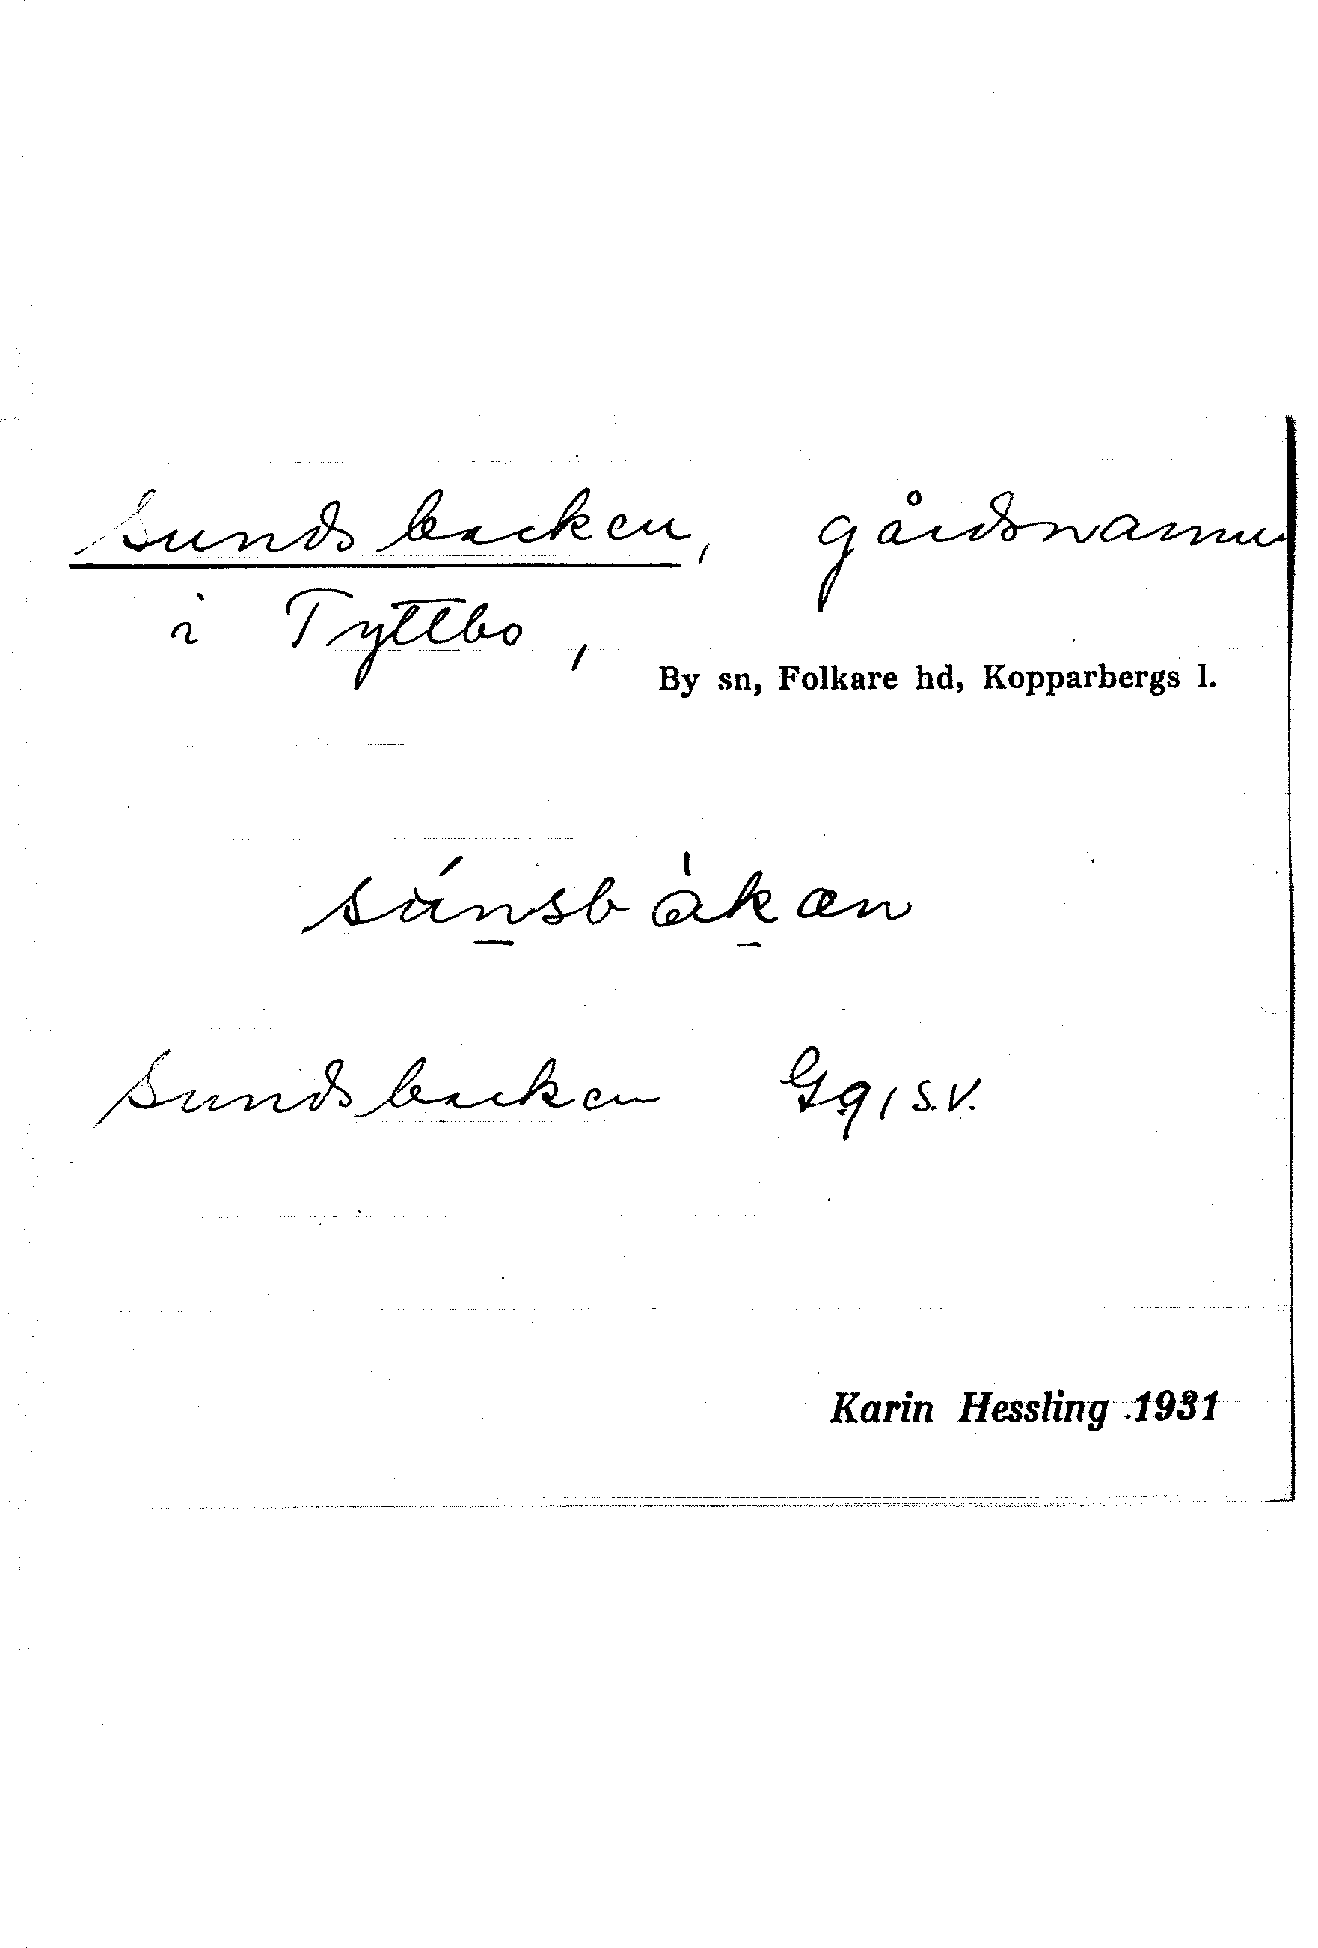 Sundsbacken, gårdsnamn
i Tyttbo,
By sn, Folkare hd, Kopparbergs l.
súnsbàkæn
Sundsbacken Gg 1 S.V.
Karin Hessling 1931